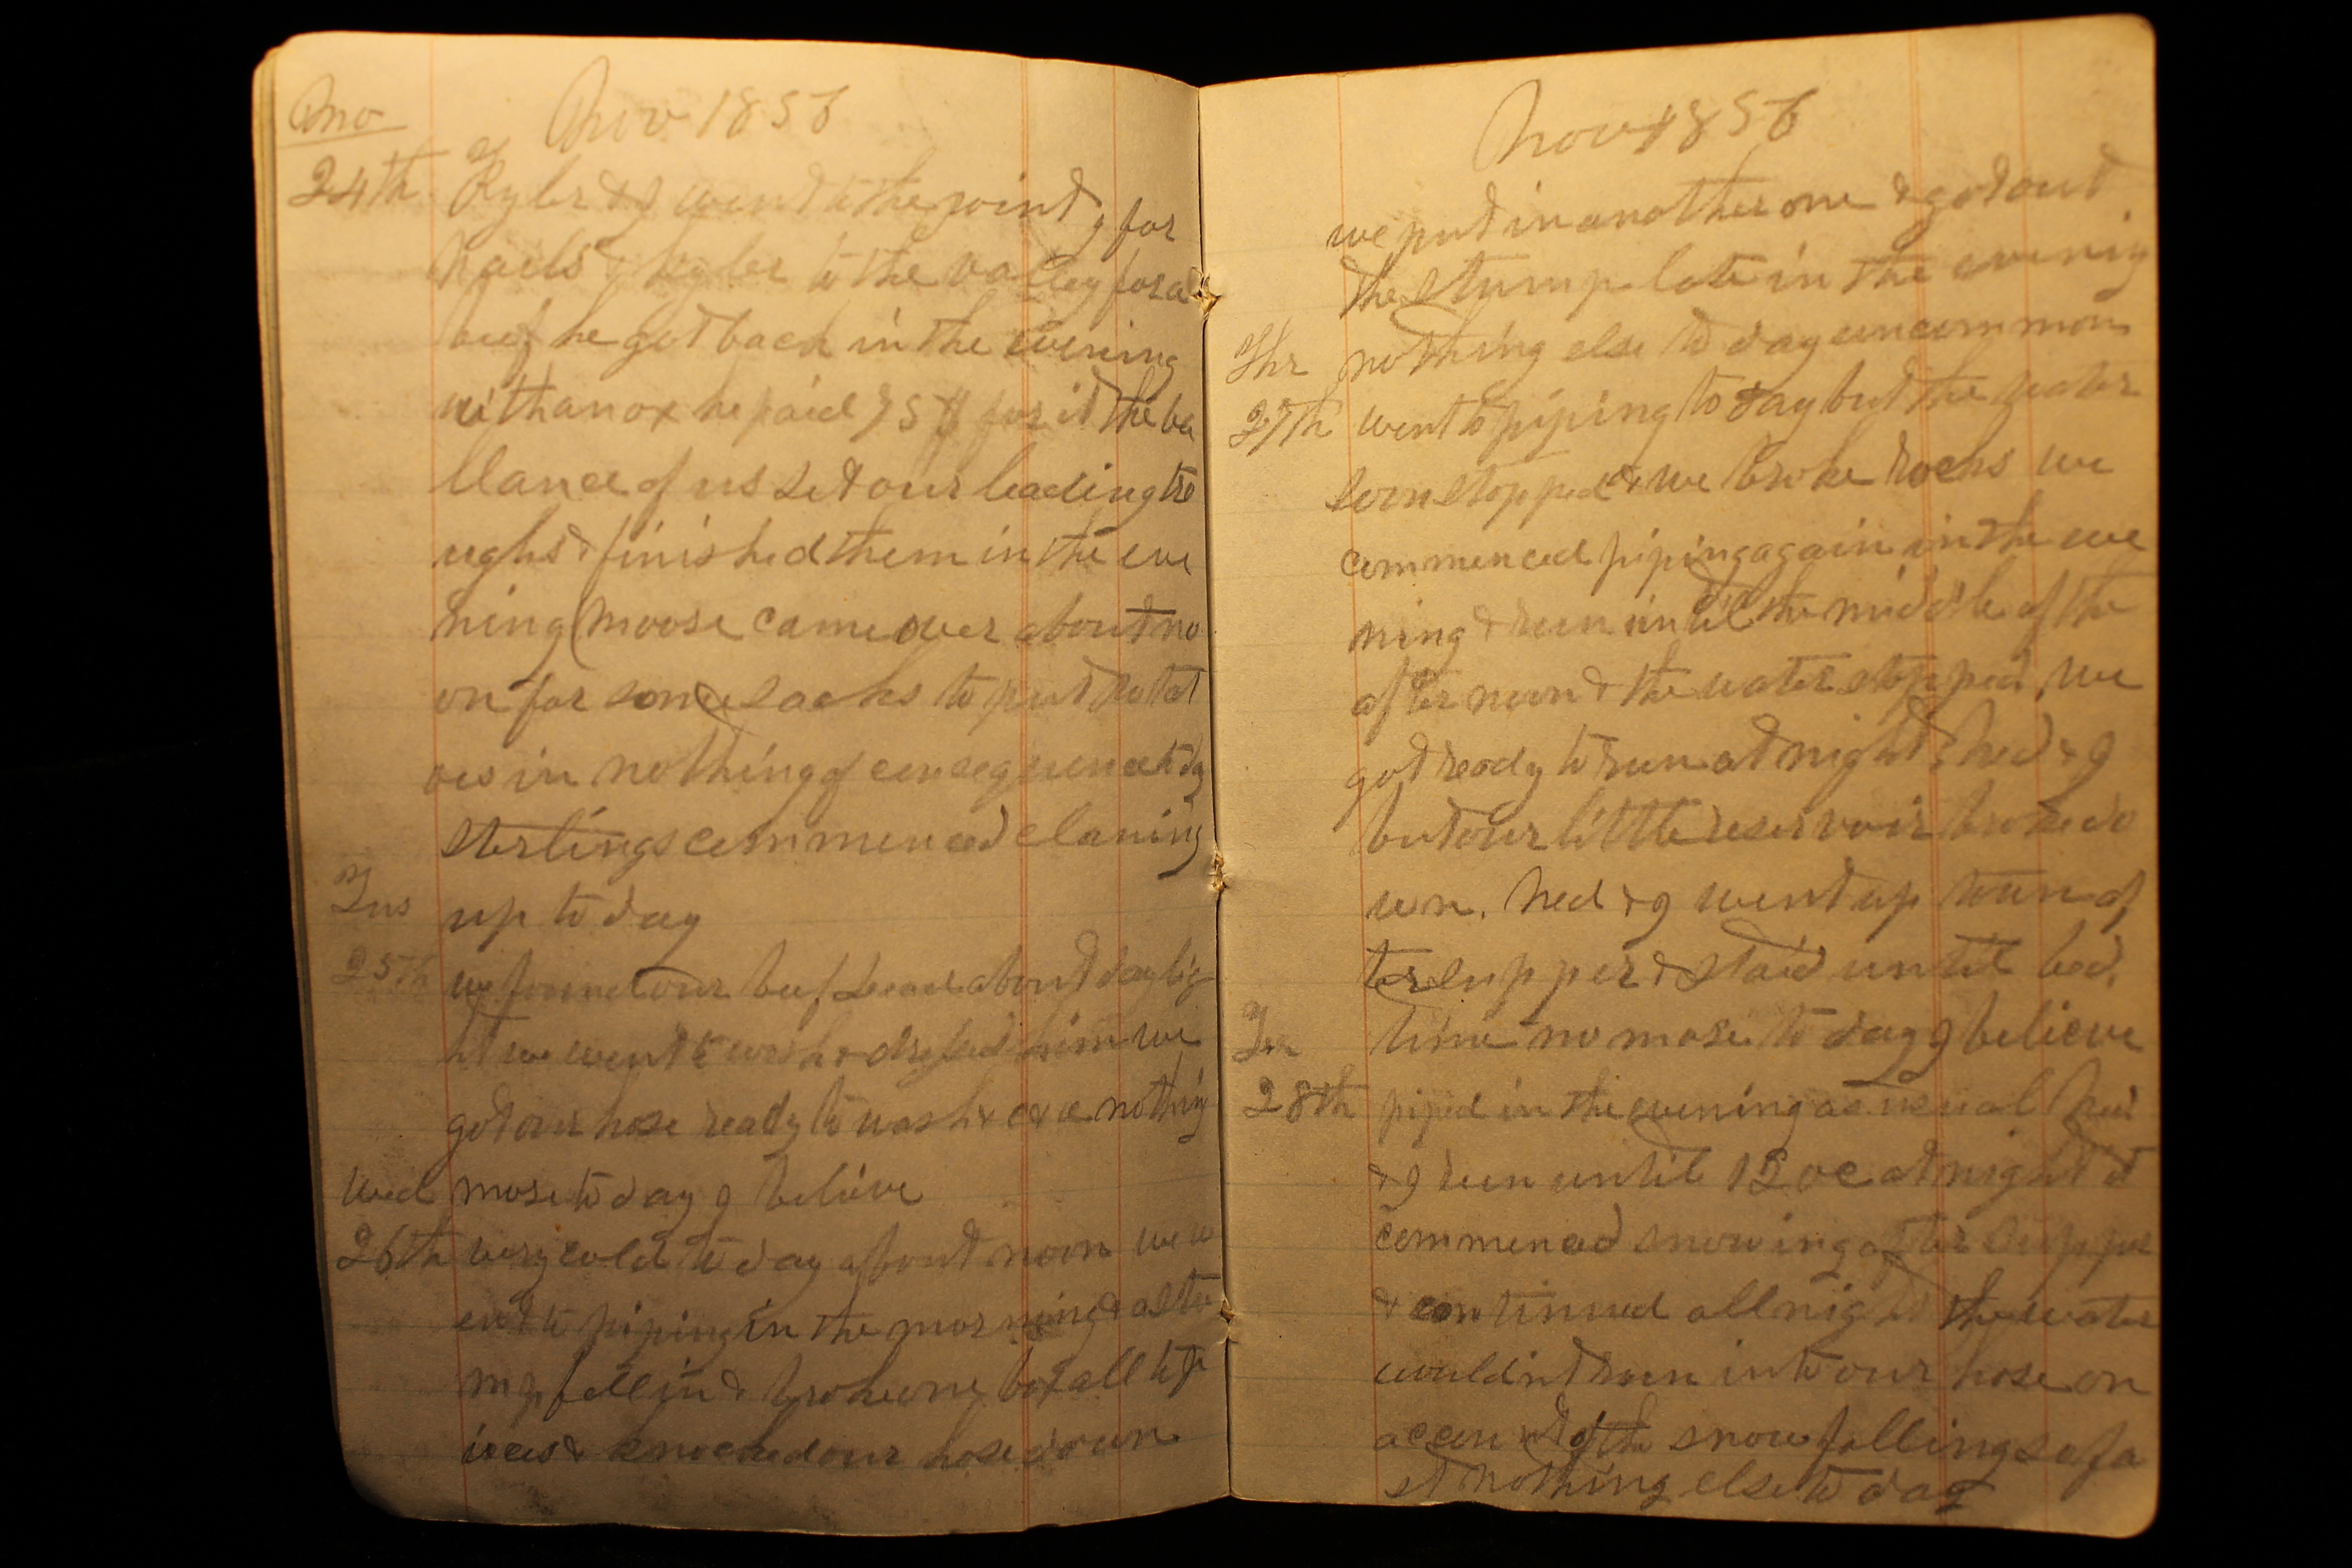 Mo
Nov 1856
24th Kyler & I went to the point I for
nails & Kyler to the valley for a
beef he got back in the evening
with an ox he paid 75 $ for it the ba
llance of us set our leading tro
ughs & finished them in the eve
ning Moose came over about no
on for some sacks to put potat
oes in nothing of consequence to day
Sterlings commenced claning
Tus up to day
25th we found our beef about daylig
ht we went to work & dressed him we
got our hose ready to wash & c & c nothing
Wed more to day I believe
26th very cold to day about noon we w
ent to piping in the morning & a stu
mp fell in & broke one box all to p
ieces & knocked our hose down
Nov 1856
we put in another one & got out
the stump late in the evenig
Thr nothing else to day uncommon
27th went to piping to day but the water
soon stopped & we broke rocks we
commenced piping again in the eve
ning & run until the middle of the
after noon & the water stopped we
got ready to run at night Ned & I
but our little reservoir broke do
wn. Ned & I went up town af
ter supper & staid until bed
time no more to day I believe
28th piped in the evening as usual Ned
& I run until 12 oc at night it
commenced snowing after supper
& continued all night the water
wouldnt run into our hose on
account of the snow falling so fa
st nothing else to day